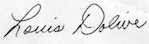 Louis Dolive